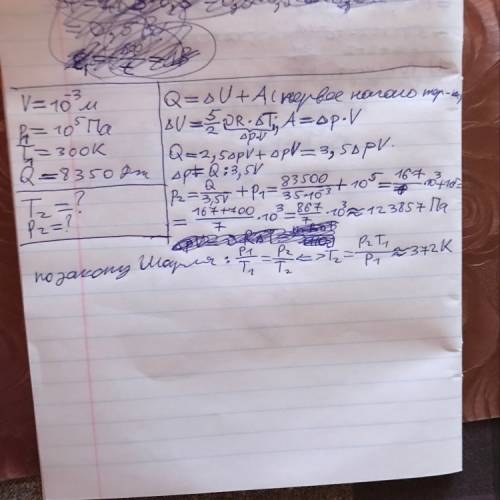 V = 10⁻³ м
P₁ = 10⁵ Па
T₁ = 300К
Q = 8350 Дж
T₂ = ?
P₂ = ?
Q = ΔU + A (первое начало тер-ки)
ΔU = 5/2 νR·ΔT; A = Δp·V
Δp·V
Q = 2,5ΔpV + ΔpV = 3,5ΔpV.
Δp = Q : 3,5V
P₂ = Q/3,5V + P₁ = 83500/35·10⁻³ + 10⁵ = 167/7·10³ + 10⁵ =
= 167+700/7 · 10³ = 867/7 · 10³ ≈ 12385⁷ Па
по закону Шарля: P₁/T₁ = P₂/T₂ <=> T₂ = P₂T₁/P₁ ≈ 372 К